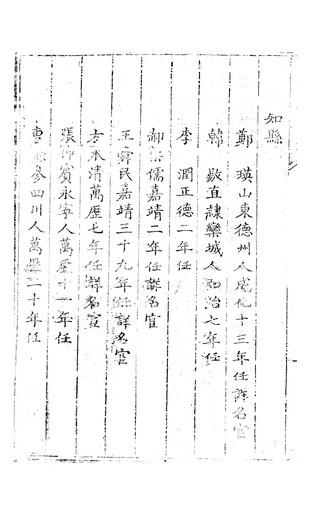 知縣
鄭 瑛山東德州人成化十三年任詳名宦
韓 敏直隷欒城人弘治七年任
李 潤正德二年任
郝 儒嘉靖二年任詳名宦
王舜民嘉靖三十九年任詳名宦
方本清萬歷七年任詳名宦
張 賓永寧人萬歷十一年任
曹 參四川人萬歷二十年任